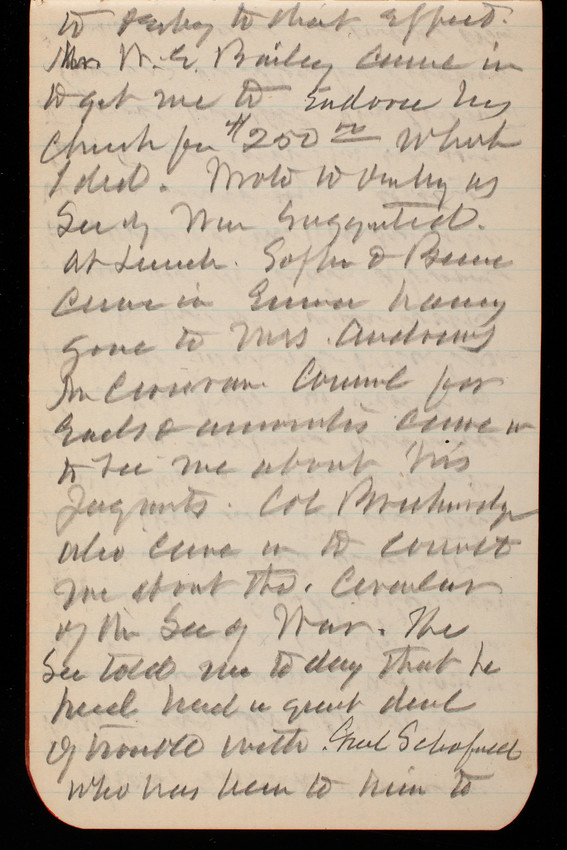 to that effect.
Mrs W. E. Bailey came in
to get me to endorse his
Check for $250 00 which
I did. Wrote to as
Sec of War Suggested.
At Lunch. &
came in having
gone to Mrs. Andrews
Mr Council for
came in
to see me about his
. Col
also came in to consult
me about the Circular
of the Sec of War. The
Sec told me today that he
had had a great deal
of trouble with Genl Schofield
who has been to him to